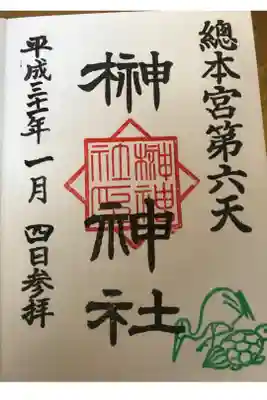 總本宮第六天
榊神社
平成三十一年一月四日参拝
榊神
社印